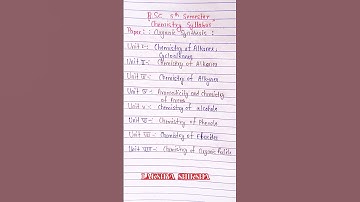 B.Sc 3rd Semester
Chemistry Syllabus
Paper:: Organic Synthesis:
Unit I-: Chemistry of Alkanes,
Cycloalkanes
Unit II-: Chemistry of Alkenes
Unit III-: Chemistry of Alkynes
Unit IV-: Aromaticity and Chemistry
of Arenes
Unit V-: Chemistry of alcohols
Unit VI-: Chemistry of Phenols
Unit VII-: Chemistry of Epoxides
Unit VIII-: Chemistry of Organic Halide
LAKSHYA SHIKSHA